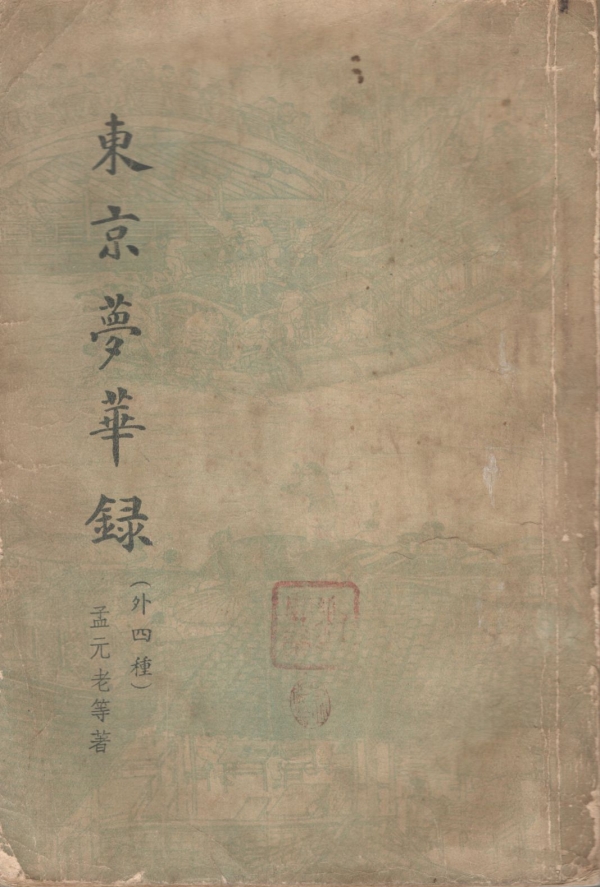 東京夢華録
(外四種)
孟元老等著